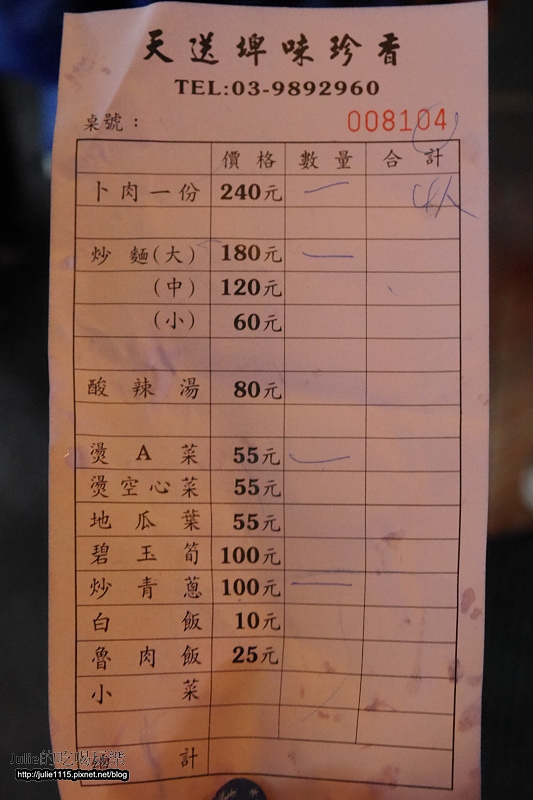 天送埤味珍香
TEL:03-9892960
桌號：
008104
價格 數量 合計
卜肉一份 240元 一 4人
炒麵(大) 180元 一
(中) 120元
(小) 60元
酸辣湯 80元
燙A菜 55元 一
燙空心菜 55元
地瓜葉 55元
碧玉筍 100元
炒青蔥 100元 一
白飯 10元
魯肉飯 25元
小菜
總計
Julie的吃喝玩樂
http://julie1115.pixnet.net/blog